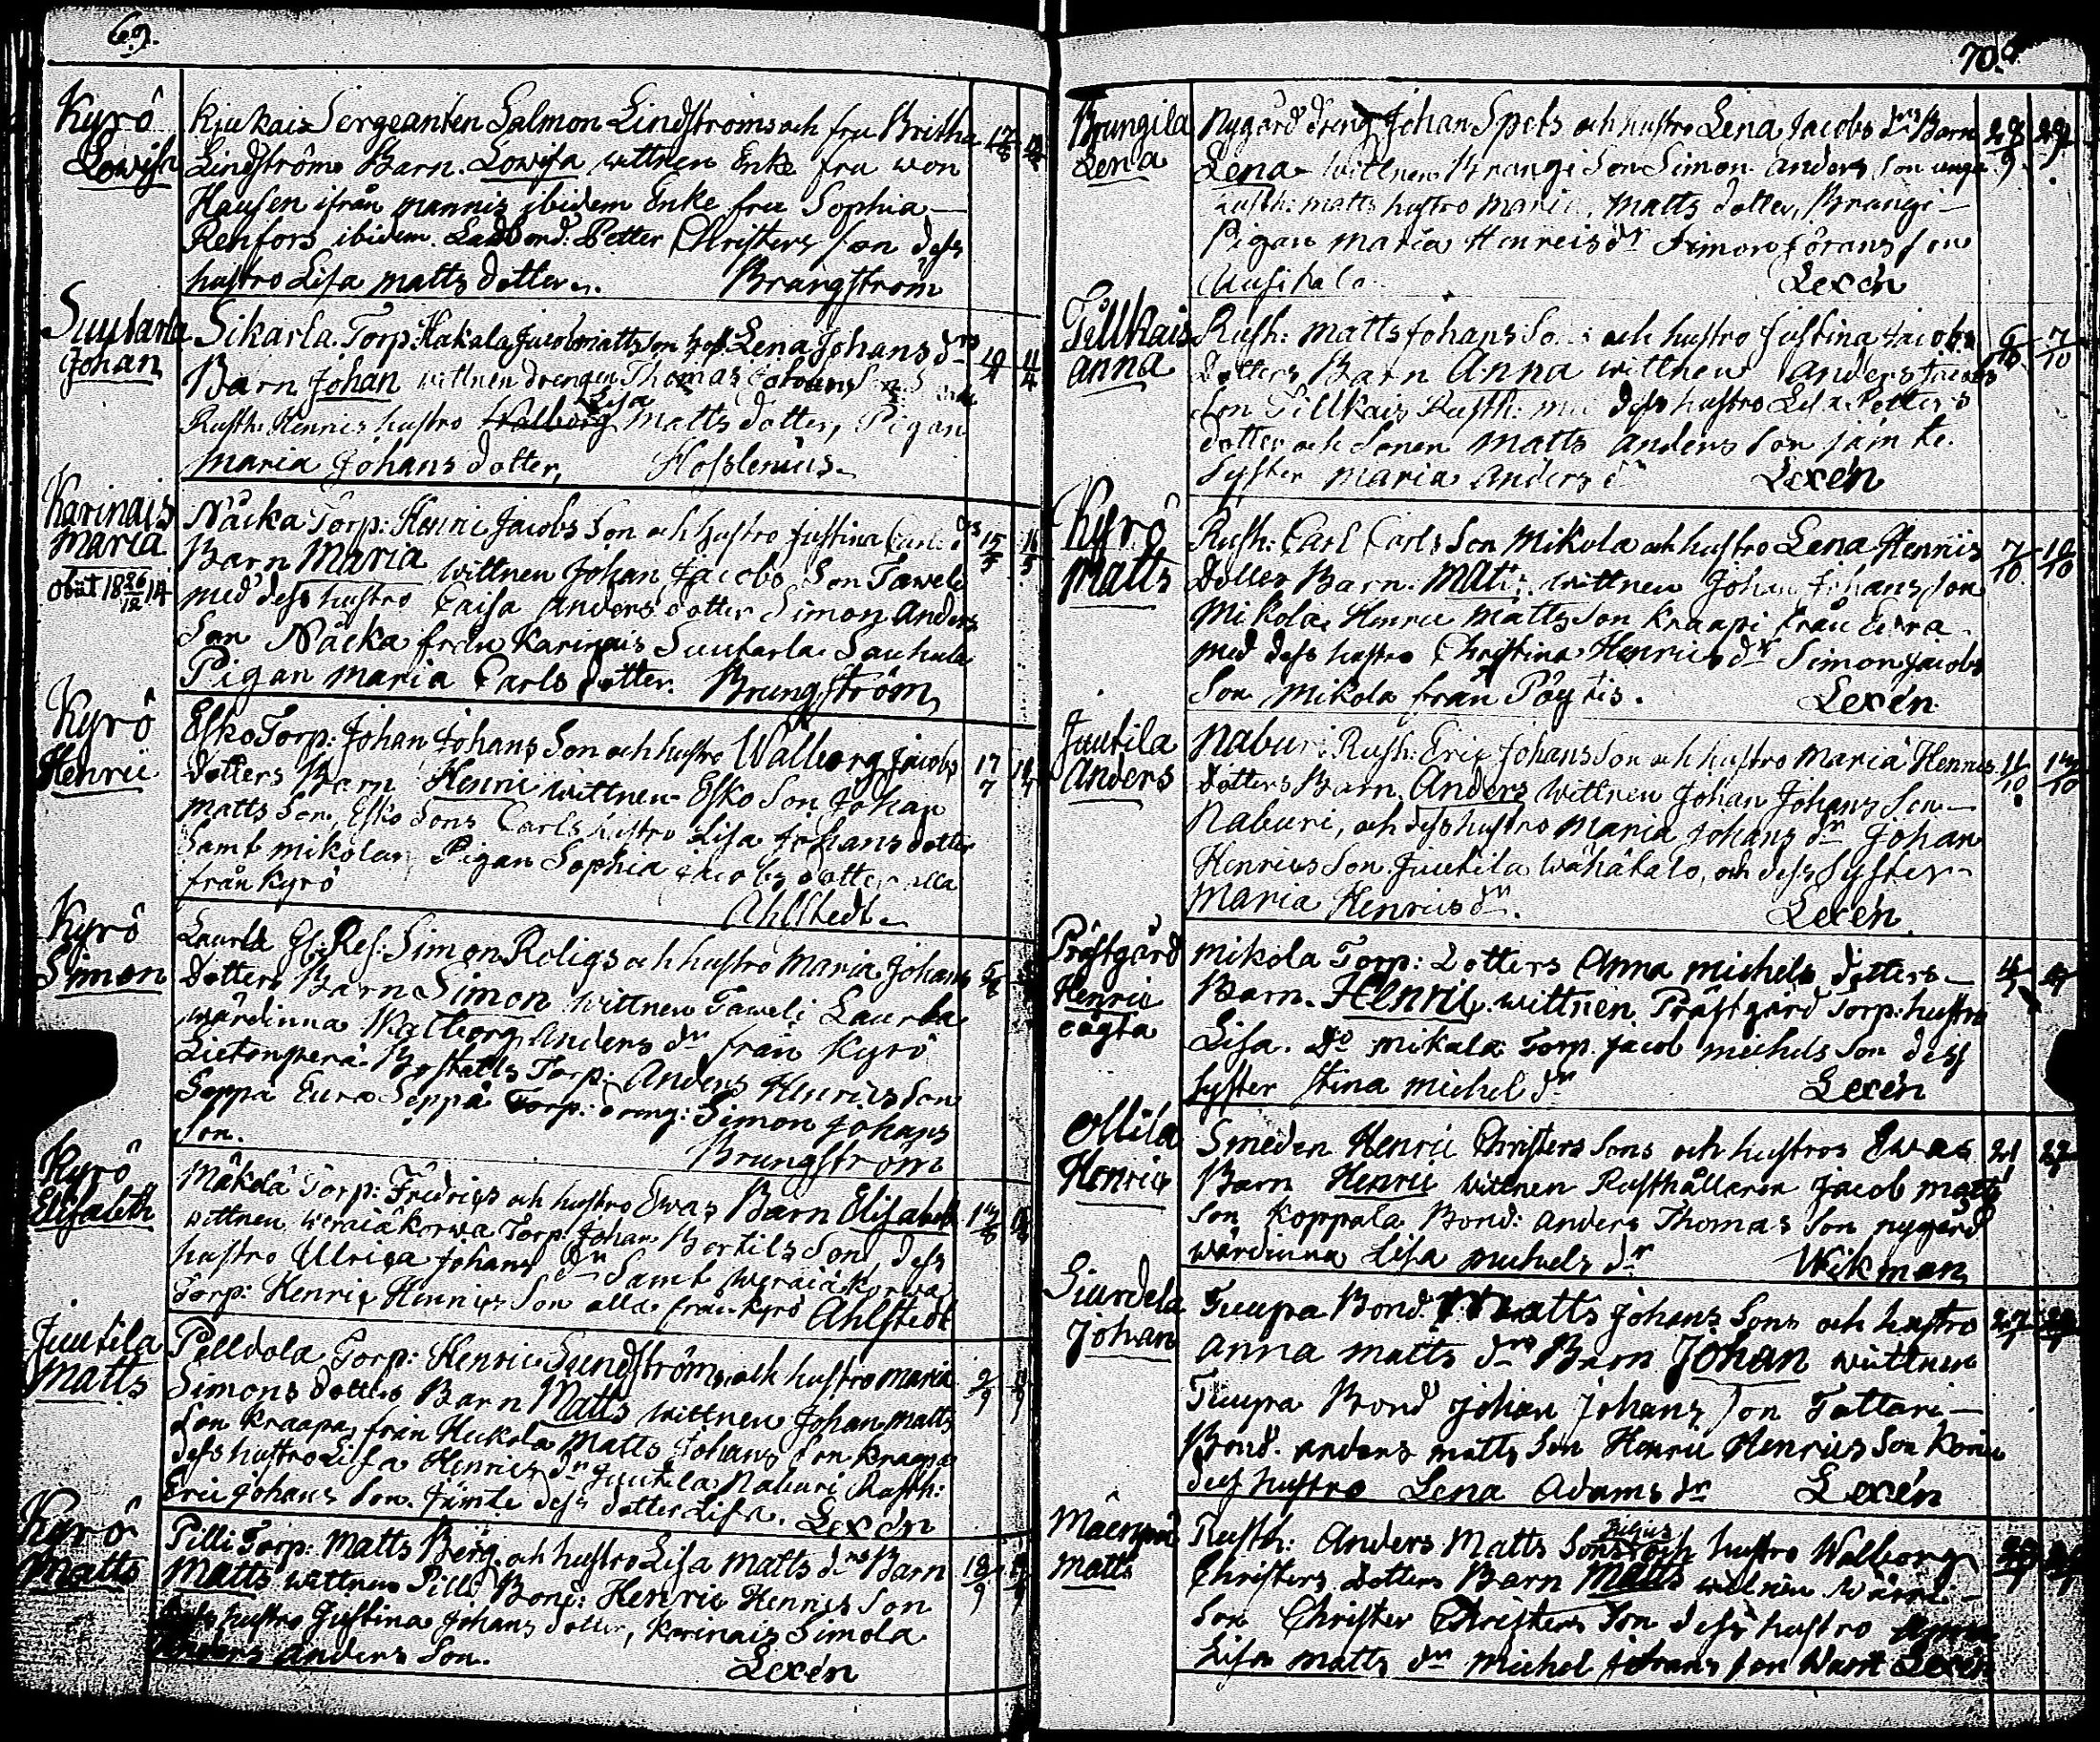 69.
Kyrö
Lowisa
Kiukais Sergeanten Salmon Lindströms och fru Britha
Lindströms Barn. Lowisa wittnen Enke fru won
Hausen ifrån mannis ibidem Enke fru Sophia
Renfors ibidem. Ladbond: Petter Christers son dess
hustro Lisa matts dotter. Brungström
Suutarla
Johan
Sikarla Torp: Hakala Jacob matts son hust: Lena Johans drs
Barn Johan wittnen drengen Thomas Johans Son
Rusth: Henrics hustro Walborg Lisa Matts dotter, Pigan
Maria Johans dotter, Hosslenius
Karinais
Maria
obiit 18 26/12 14
Näcka Torp: Henric Jacobs Son och hustro Justina Carls drs 15/5 16/5
Barn Maria wittnen Johan Jacobs Son Taweli
med dess hustro Caisa Anders dotter Simon Anders
Son Näcka från Karinais Suutarla Sauhula
Pigan Maria Carls dotter. Brungström
Kyrö
Henric
Esko Torp: Johan Johans Son och hustro Walborg Jacobs 17/7
dotters Barn Henric wittnen Esko Son Johan
Matts Son, Esko Sons Carls hustro Lisa Johans dotter
samt mikolas Pigan Sophia Jacobs dotter alla
från Kyrö
Ahlstedt
Kyrö
Simon
Laurla Gf: Ref: Simon Roligs och hustro Maria Johans
Dotters Barn Simon wittnen Taweli Laurla
wärdinna Walborg Anders dr från Kyrö
Lietonperä Boställs Torp: Anders Henrics Son
Seppä Eura Seppä Torp: dreng: Simon Johans
Son.
Brungström
Kyrö
Elisabeth
Mäkelä Torp: Fredrics och hustro Ewas Barn Elisabeth
wittnen weraiäkorwa Torp: Johan Bertils Son, dess
hustro Ulrica Johans dr Samt weraiäkorwa
Torp: Henric Henrics Son alla från Kyrö Ahlstedt
Juutila
Matts
Pelldola Torp: Henric Sundströms och hustro Maria 2/9
Simons dotters Barn Matts wittnen Johan Matts
Son Kraapa från Heikola Matts Johans Son Kraapa
dess hustro Lisa Henrics dr Juutila Naburi Rusth:
Eric Johans Son. Jämte dess dotter Lisa. Lexén
Kyrö
Matts
Pilli Torp: Matts Berg och hustro Lisa Matts drs Barn 18/9
Matts wittnen Pilli Bond: Henric Henrics Son
dess hustro Justina Johans dotter, Karinais Simola
Anders Son.
Lexén
70.
Brungila
Lena
Nygård dreng Johan Spets och hustro Lena Jacobs drs Barn 28/9 29/9
Lena wittnen Brangi Son Simon Anders Son unga
Rusth: Matts hustro Maria Matts dotter, Brangi
Pigan Maria Henrics dr Simon Görans son
Uusitalo Lexén
Tillkais
Anna
Rusth: Matts Johans Son och hustro Justina Jacobs 6/10 7/10
dotters Barn Anna wittnen Anders Jacobs
Son Tillkais Rusth: med dess hustro Lisa Petters
dotter och Sonen Matts Anders Son jämte
Syster Maria Anders dr Lexén
Kyrö
Matts
Rusth: Carl Carls Son Mikola och hustro Lena Henrics 7/10 10/10
Dotters Barn. Matts wittnen Johan Johans son
Mikola, Henric Matts Son Kraapi från Eura
med dess hustro Christina Henrics dr Simon Jacobs
Son Mikola från Pöytis. Lexén
Juutila
Anders
Naburi Rusth: Eric Johans Son och hustro Maria Henrics 11/10 13/10
dotters Barn Anders wittnen Johan Johans Son
Naburi, och dess hustro Maria Johans dr Johan
Henrics Son Juutila wähätalo, och dess Syster
Maria Henrics dr. Lexén
Prästgård
Henric
oägta
Mikola Torp: Dotters Anna Michels dotters
Barn. Henric wittnen Prästgård Torp: hustro
Lisa. Do Mikala Torp. Jacob Michels Son dess
Syster Stina Michel dr Lexén
Ollila
Henric
Smeden Henric Christers Sons och hustros Ewas 21
Barn Henric wittnen Rusthållaren Jacob Matts
Son Koppala Bond: Anders Thomas Son nygård
wärdinna Lisa Michels dr Wikman
Giurdela
Johan
Tuupa Bond. Matts Johans Sons och hustro 27
Anna Matts drs Barn Johan wittnen
Tuupa Bond Johan Johans Son Tattari
Bond. Anders Matts Son Henric Henrics Son
dess hustro Lena Adams dr Lexén
Mäenpää
Matts
Rusth: Anders Matts Sons och hustro Walborg
Christers Dotters Barn Matts wittnen
Son Christer Christers Son dess hustro
Lisa Matts dr Michel Johans son Lexén